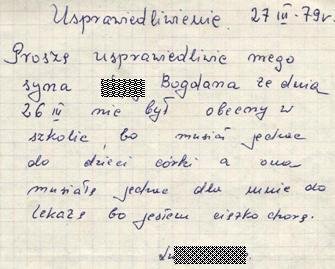 Usprawiedliwienie. 27 III - 79r.
Proszę usprawiedliwić mego
syna Bogdana że dnia
26 III nie był obecny w
szkolie, bo musiał jechać
do dzieci córki a ona
musiałą jechać dla mnie do
lekaża bo jestem ciężko chora.